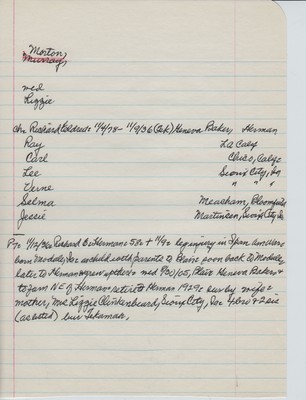 Morton,
Murray,
wed
Lizzie
chn Richard Eldred: 11/4/78-11/9/36 (Tek) Geneva Baker, Herman
Ray La Caly
Carl Chico, Calif
Lee Sioux City, Ia
Verne " " "
Selma Meacham, Bloomfield
Jessie Martinson, Sioux City, Ia
P 7c 11/12/36 Richard B: Herman: 58: + 11/9: leg injury in Span Am War:
born Modale, Ia: as child with parents to Blair: soon back to Modale,
later to Herman: wed 9/20/05, Blair Geneva Baker &
to farm NE of Herman: retired Herman 1929: surv by wife:
mother, Mrs Lizzie Clinkenbeard, Sioux City, Ia: 4 bro & 2 sis
(as listed) bur Tekamah,